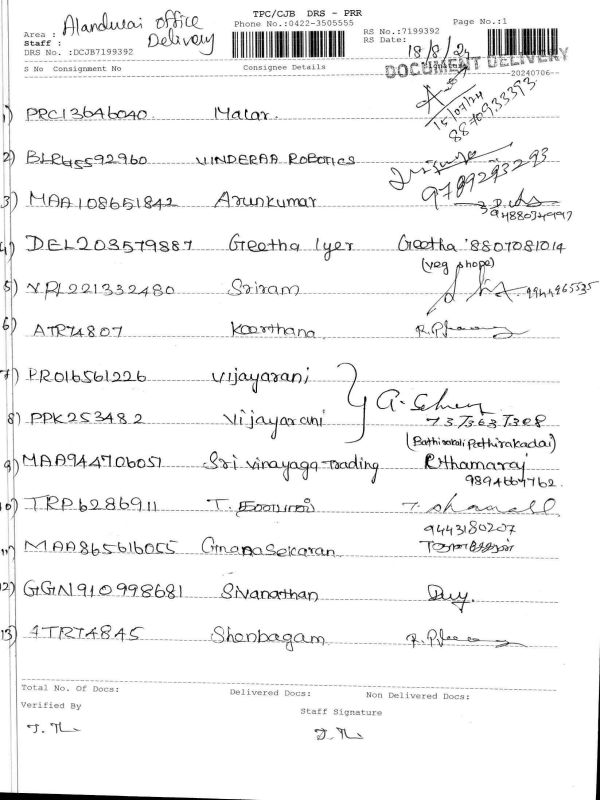 TPC/CJB DRS - PRR
Phone No.:0422-3505555 Page No.:1
Area : Alandurai office
Staff : Delivery
RS No.:7199392
RS Date: 18/8/24
DRS No. :DCJB7199392
DOCUMENT DELIVERY
S No Consignment No Consignee Details 20240706--
15/07/24
8870933393
1) PRC13646040. Malar.
2) BLR65592960 VINDERAA ROBOTICS
9789293293
3) MAA108651842 Arunkumar
4) DEL203579887 Geetha Iyer Geetha 8807081014
(veg shope)
5) VPL221332480 Sriram 9944965535
6) ATR74807 Keerthana
7) PRO16561226 Vijayarani
8) PPK253482 Vijayarani
9) MAA944706051 Sri vinayaga Trading
9894667762.
10) TRP6286911
9443180207
11) MAA865616055 GnanaSekaran
12) GGN910998681 Sivanathan
13) ATR74845 Shenbagam
Total No. Of Docs: Delivered Docs: Non Delivered Docs:
Verified By Staff Signature